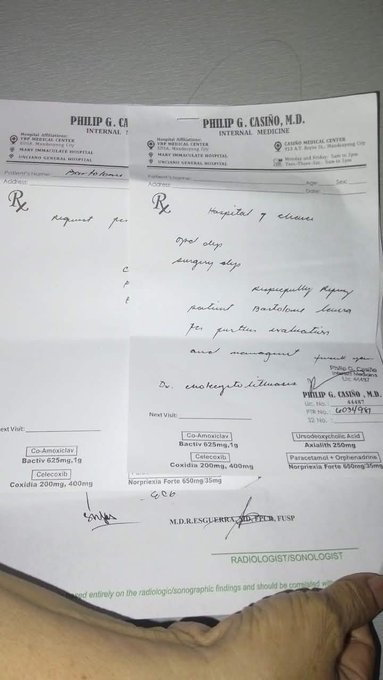 PHILIP G. CA
INTERNAL
Hospital Affiliations:
VRP MEDICAL CENTER
EDSA, Mandaluyong City
MARY IMMACULATE HOSPITAL
UNCIANO GENERAL HOSPITAL
Patient's Name:
Address:
Rx
Request
ext Visit:
Co-Amoxiclav
Bactiv 625mg,1g
Celecoxib
Coxidia 200mg, 400mg
PHILIP G. CASIÑO, M.D.
INTERNAL MEDICINE
Hospital Affiliations:
VRP MEDICAL CENTER
EDSA, Mandaluyong City
MARY IMMACULATE HOSPITAL
UNCIANO GENERAL HOSPITAL
CASIÑO MEDICAL CENTER
Monday and Friday: 9am to 2pm
Patient's Name:
Age: Sex:
Address:
Rx
Hospital of choice
opd dep
surgery dep
Respectfully
patient Bartolome
for further evaluation
and managment thank you
Dx. cholecystolithiasis
Philip G. Casiño
Internal Medicine
Lic 44487
PHILIP G. CASIÑO, M.D.
Lic. No. 44487
PTR No.
S2 No.
Next Visit:
Co-Amoxiclav
Bactiv 625mg,1g
Ursodeoxycholic Acid
Axialith 250mg
Celecoxib
Coxidia 200mg, 400mg
Paracetamol + Orphenadrine
Norpriexia Forte 650mg/35mg
Norpriexia Forte 450mg/35mg
M.D.R.ESGUERRA, MD, FPCR, FUSP
RADIOLOGIST/SONOLOGIST
based entirely on the radiologic/sonographic findings and should be correlated